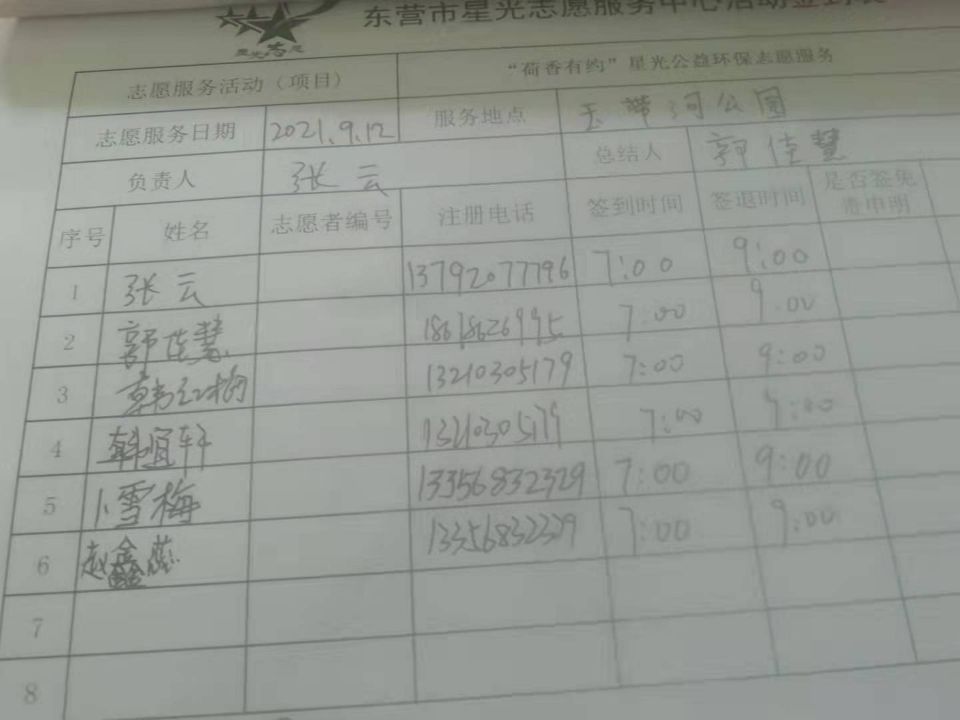 东营市星光志愿服务中心活动签到表
星光志愿
志愿服务活动（项目） “荷香有约”星光公益环保志愿服务
志愿服务日期 2021.9.12 服务地点 玉带河公园
负责人 张云 总结人 郭佳慧
序号 姓名 志愿者编号 注册电话 签到时间 签退时间 是否签免责申明
1 张云 13792077796 7:00 9:00
2 郭佳慧 7:00 9.00
3 韩红梅 13210305179 7:00 9:00
4 韩宜轩 13210305179 7:00 9:00
5 卜雪梅 13356832329 7:00 9:00
6 赵鑫蕊 13356832329 7:00 9:00
7
8